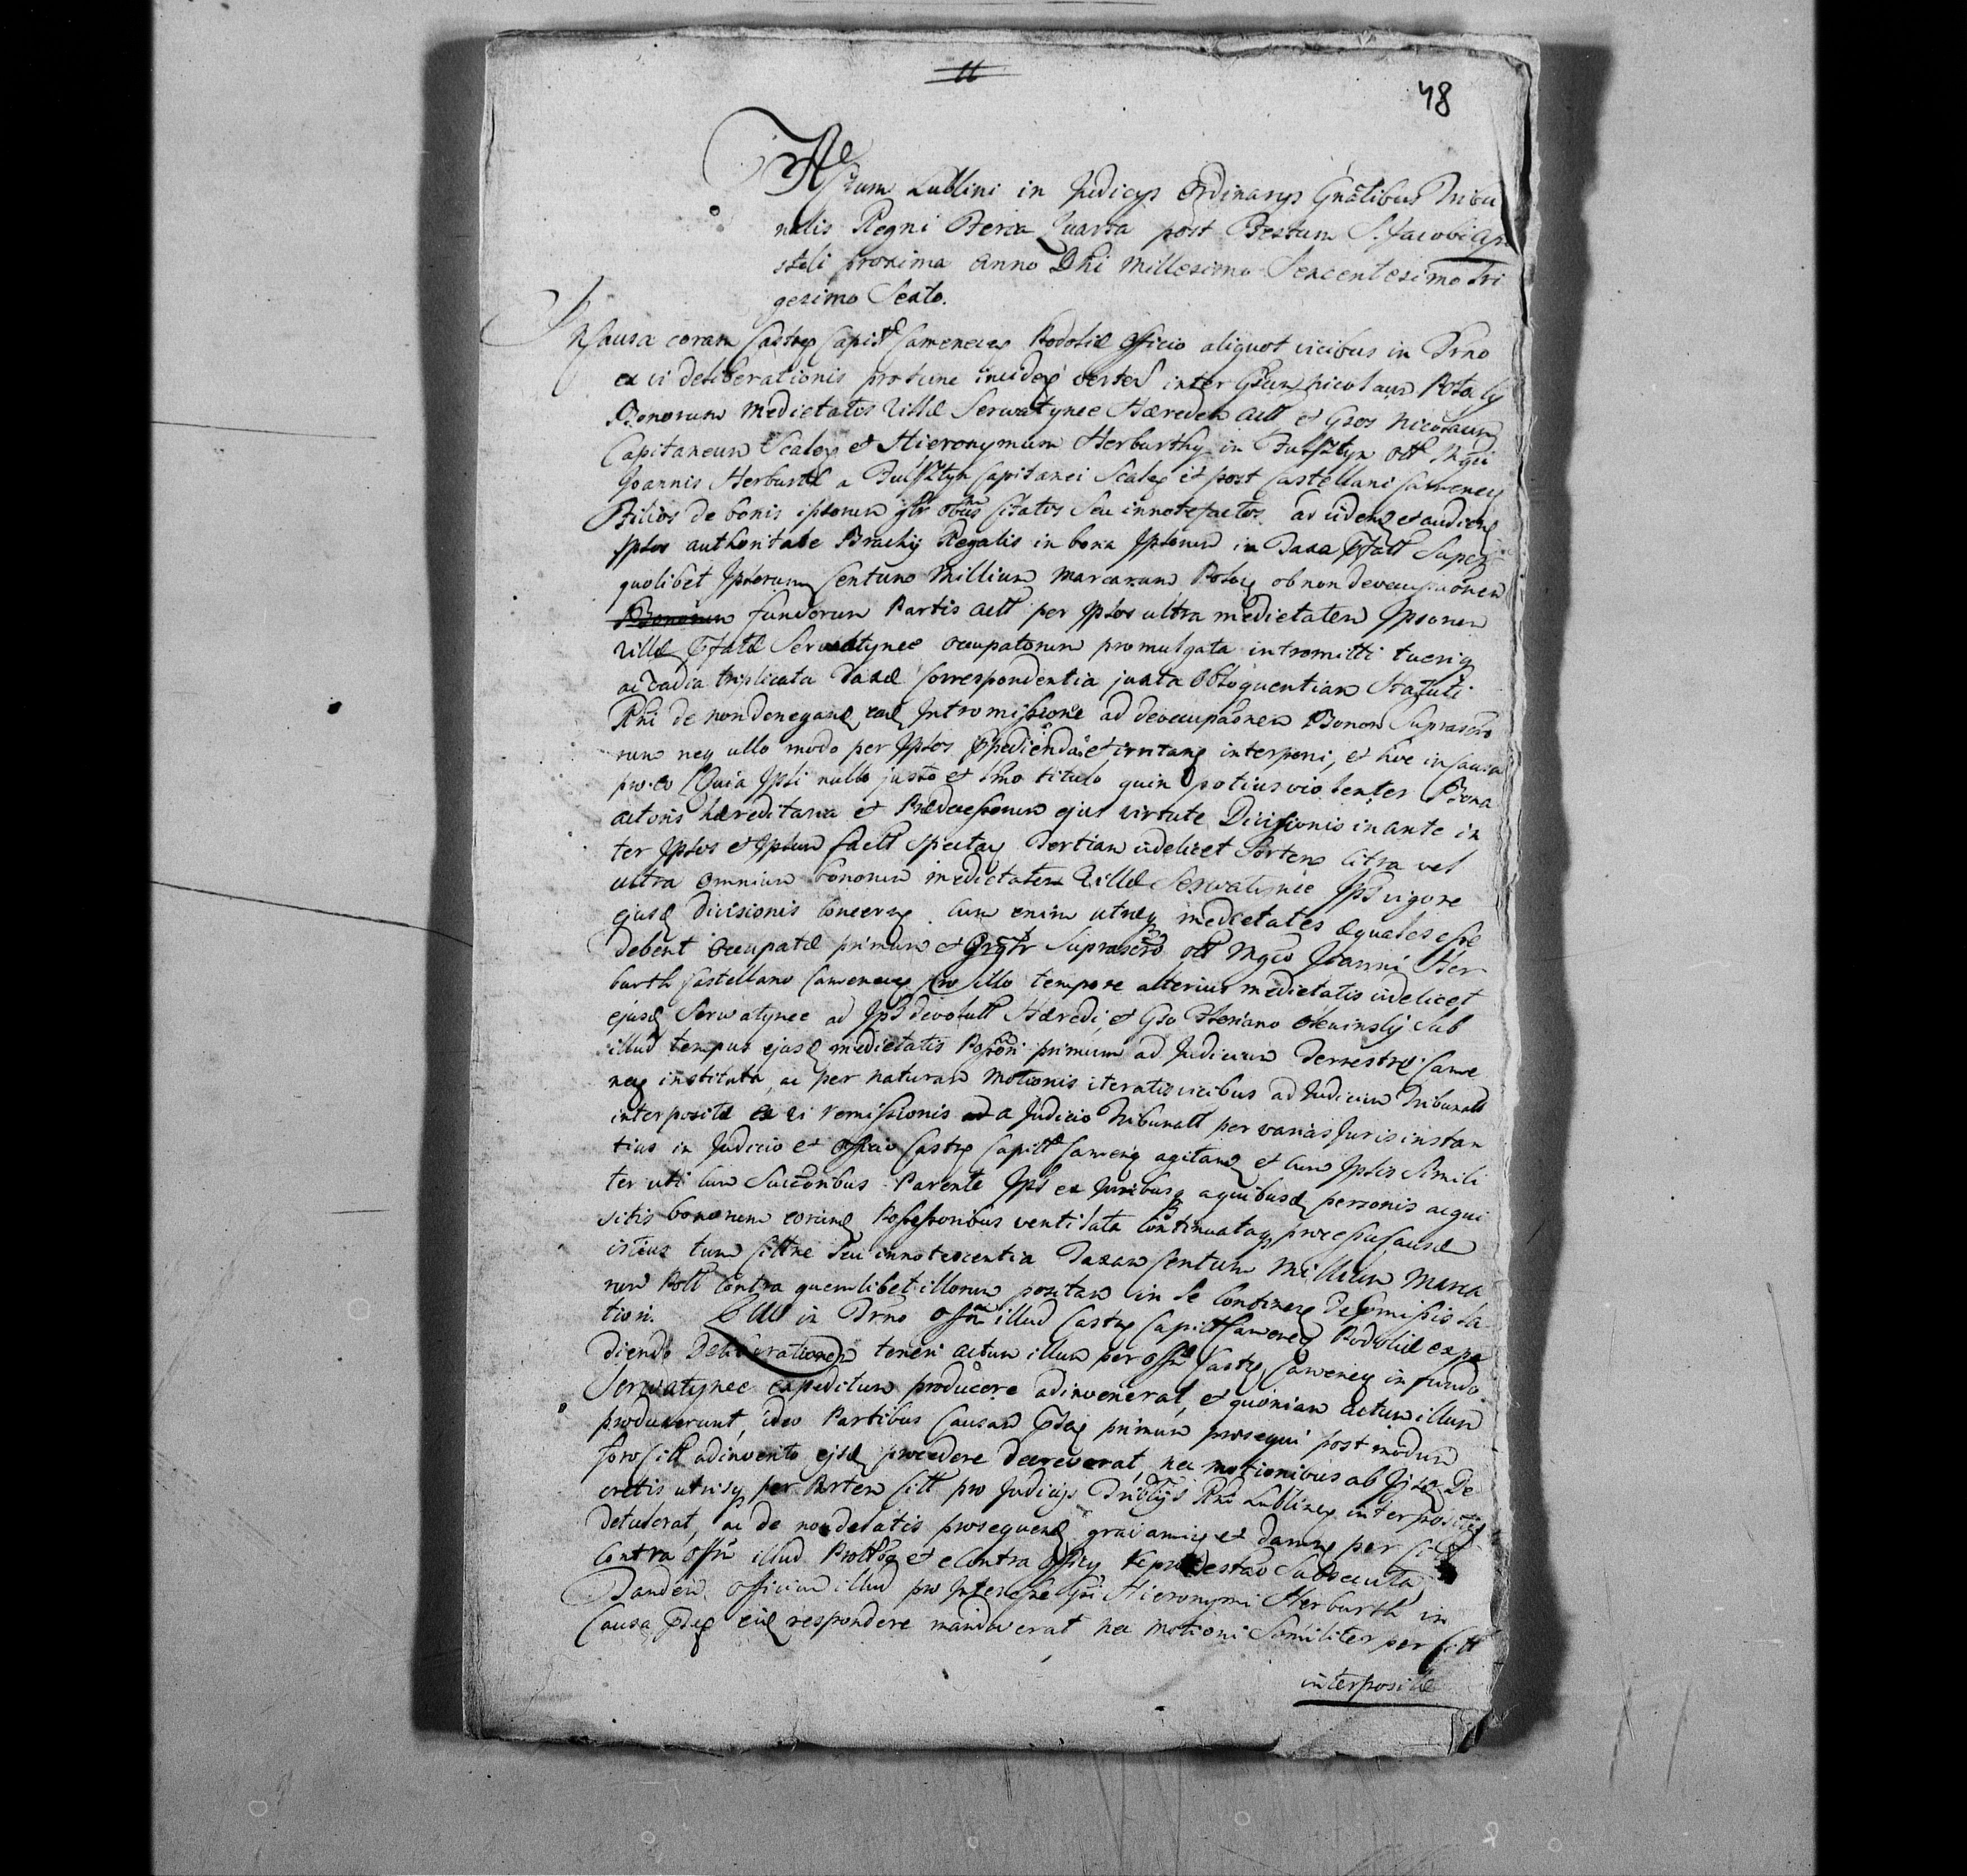 11
48
Actum Lublini in Judicijs Ordinarijs Gnãlibus Tribu
nalis Regni Feria Quarta post Festum S. Jacobi Apo
stoli proxima Anno Dni Millesimo Sexcentesimo Tri
gesimo Sexto.
In Causa coram Capit Camenecen Podoliæ Officio aliquot vicibus in Trno
ex vi deliberationis protunc inter Nicolaum
Bonorum medietatis Villæ Serwatynce Hæredem Act et Gsos Nicolaum
Capitaneum Scalen et Hieronymum Herburthy in Fulsztyn olt Mgci
Joannis Herburth a Fulsztyn Capitanei Scalen et post Castellani Camenecen
Filios de bonis ipsorum Citatos Seu innotefactos ad videnq et audienq
Ipsos authoritate Brachij Regalis in bona Ipsorum in Taxa Super
quolibet Ipsorum Centum Millium Marcarum Polon ob non
Bonorum fundorum Partis Act per Ipsos ultra medietatem Ipsorum
Villæ Serwatynce occupatorum promulgata intromitti tueriq
ac vadia triplicata Taxæ Correspondentia juxta Obloquentiam Statuti
Rni de non denegan Intromissione ad Bonor Suprascrõ
rum neq ullo modo per Ipsos et irritanq interponi, et hoc in Causa
pro eo Quia Ipsi nullo justo et titulo quin potius violenter Bona
actoris hæreditaria et Prædecessorum ejus virtute Divisionis in ante in
ter Ipsos et Ipsum fact Spectan Tertiam videlicet Sortem Citra vel
ultra omnium bonorum medietatem Villæ Serwatynce Ips vigore
ejusd divisionis Concern. Cum enim utræq medietates æquales esse
debent occupatæ primum et Suprascrõ olt Mgco Joanni Her
burth Castellano Camenecen pro illo tempore alterius medietatis videlicet
ejusd Serwatynce ad Ips devolut Hæredi, et Gso Sub
illud tempus ejusd medietatis primum ad Judicium Terrestre Came
nec instituta, ac per naturam Motionis iteratis vicibus ad Judicium Tribunall
interpositæ ex vi remissionis ad a Judicio Tribunall per varias Juris instan
tias in Judicio et Officio Castr Capitt Camenecen agitanq et cum Ipsis Simili
ter uti cum Succõribus Parentis Ips ex Juribus a quibusd personis acqui
sitis bonorum eorund Possessoribus ventilata Continuataq processu Causæ
istius tum Cittne Seu innotescentia Taxam Centum Millium Marca
rum Poll Contra quemlibet illorum positam in Se Continen
tiori. Ubi in Trno offm illud Castr Capitt Camenecen Podoliæ expe
diendo Deliberationem teneri actum illum per offm Castr Camenecen in fundo
Serwatynce expeditum producere adinvenerat, et quoniam actum illum
produxerunt, ideo Partibus Causam primum prosequi post modum
foro Citt adinvento, ejsd procedere decreverat, nec motionibus ab De
cretis utrisq per Partem Citt pro Judicijs Rni Lublinen interpositis
detulerat, ac de non delatis prosequend gravamin et damn per Citt
Contra offm illud et e Contra Subsecuta
Tandem officium illud pro Interesse Gsi Hieronymi Herburth in
Causa respondere mandaverat nec motioni Similiter per Citt
interpositæ